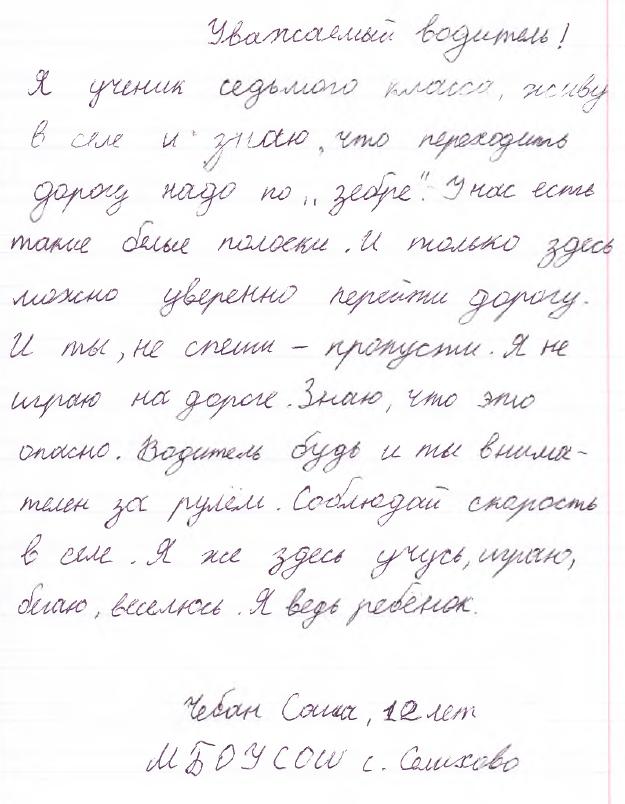 Уважаемый водитель!
Я ученик седьмого класса, живу
в селе и знаю, что переходить
дорогу надо по „зебре". У нас есть
такие белые полоски. И только здесь
можно уверенно перейти дорогу.
И ты, не спеши – пропусти. Я не
играю на дороге. Знаю, что это
опасно. Водитель будь и ты внима-
телен за рулём. Соблюдай скорость
в селе. Я же здесь учусь, играю,
бегаю, веселюсь. Я ведь ребёнок.
Чебан Саша, 12 лет
МБОУСОШ с. Солихово